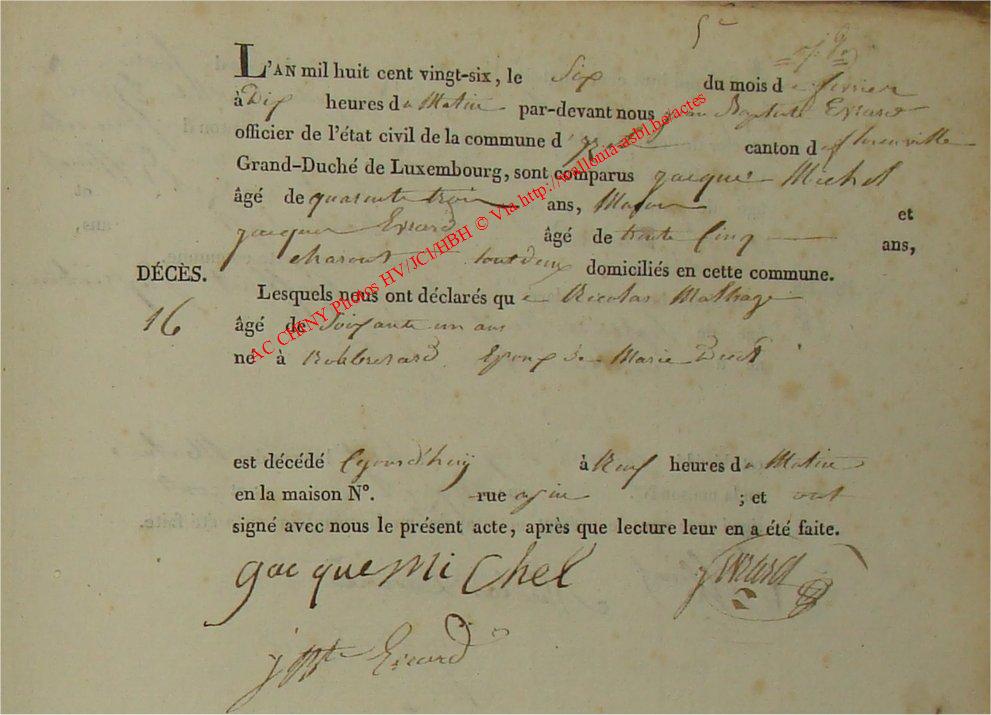 L'AN mil huit cent vingt-six, le Six du mois de fevrier
à Dix heures du Matin par-devant nous jean Baptiste Evrard
officier de l'état civil de la commune d' canton de florenville
Grand-Duché de Luxembourg, sont comparus jacque Michel
âgé de quarente trois ans, Maçon et
jacques Evrard âgé de trente Cinq ans,
charont tout deux domiciliés en cette commune.
DÉCÈS.
Lesquels nous ont déclarés que Nicolas
16
âgé de Soixante un ans
né à Epoux de Marie
est décédé à Neuf heures du Matin
en la maison N°. rue ; et ont
signé avec nous le présent acte, après que lecture leur en a été faite.
jacque Michel
jEvrard
jBte Evrard
AC CHINY Photos HV/JCl/HBH © Via http://wallonia-asbl.be/actes